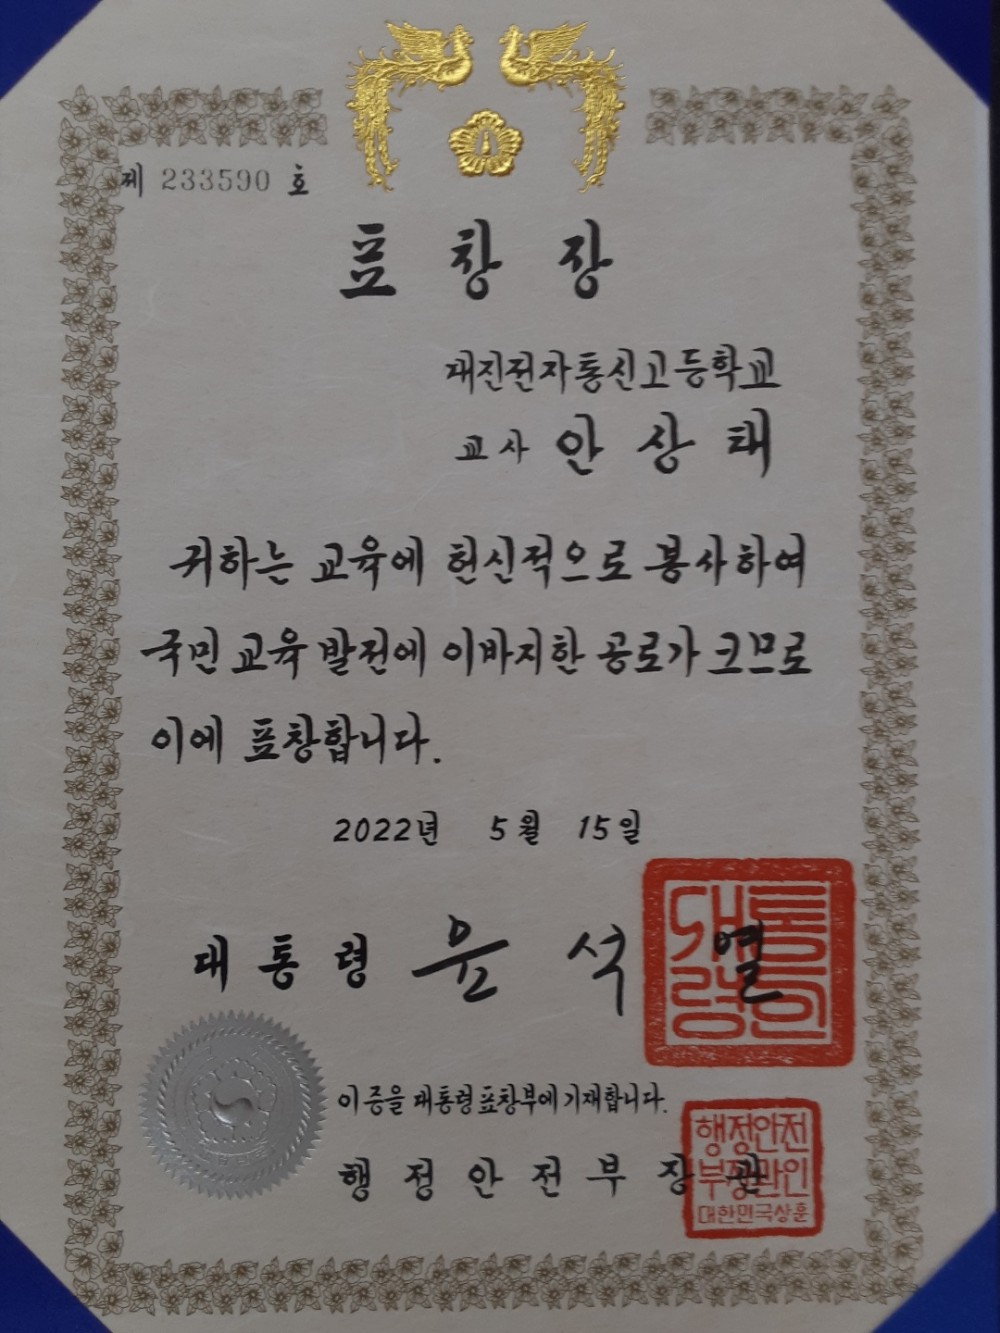 제 233590 호
표 창 장
대진전자통신고등학교
교사 안 상 태
귀하는 교육에 헌신적으로 봉사하여
국민 교육 발전에 이바지한 공로가 크므로
이에 표창합니다.
2022년 5월 15일
대 통 령 윤 석 열
대통령인
이 증을 대통령표창부에 기재합니다.
행 정 안 전 부 장 관
행정안전
부장관인
대한민국상훈